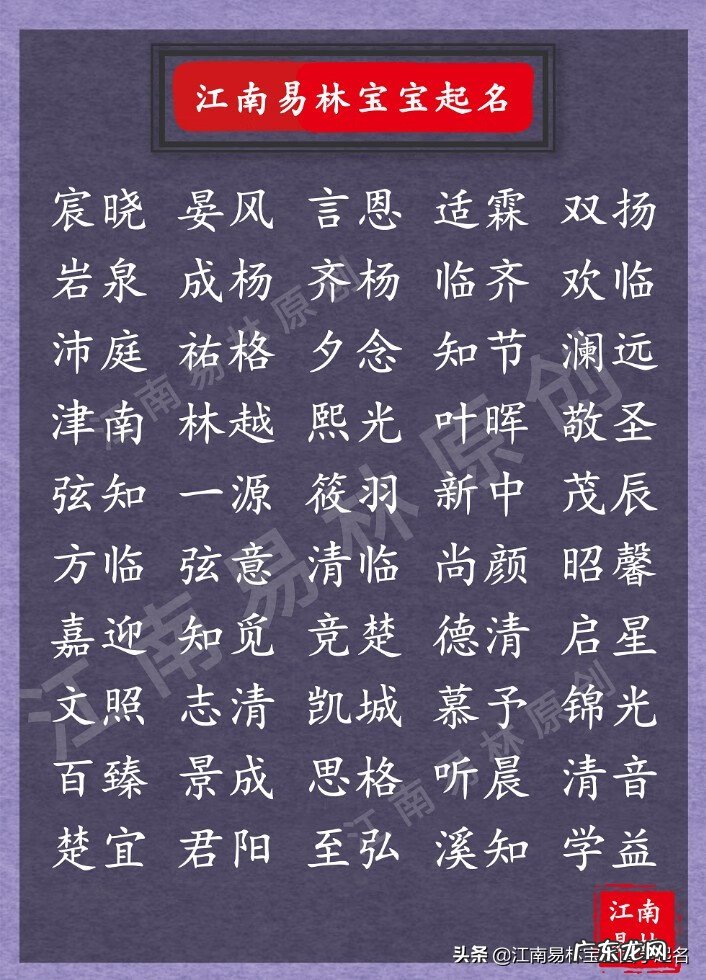 江南易林宝宝起名
宸晓 晏风 言恩 适霖 双扬
岩泉 成杨 齐杨 临齐 欢临
沛庭 祐格 夕念 知节 澜远
津南 林越 熙光 叶晖 敬圣
弦知 一源 筱羽 新中 茂辰
方临 弦意 清临 尚颜 昭馨
嘉迎 知觅 竞楚 德清 启星
文照 志清 凯城 慕予 锦光
百臻 景成 思格 听晨 清音
楚宜 君阳 至弘 溪知 学益
江南易林原创
江南易林原创
江南易林原创
江南
广东龙网
头条 @江南易林宝宝起名